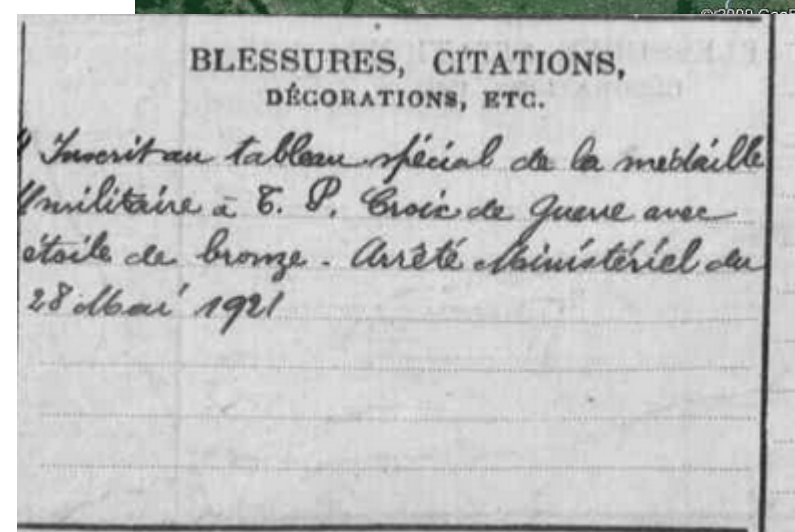 BLESSURES, CITATIONS,
DÉCORATIONS, ETC.
Inscrit au tableau spécial de la médaille
militaire à T. P. Croix de Guerre avec
étoile de bronze. Arrêté Ministériel du
28 Mai 1921